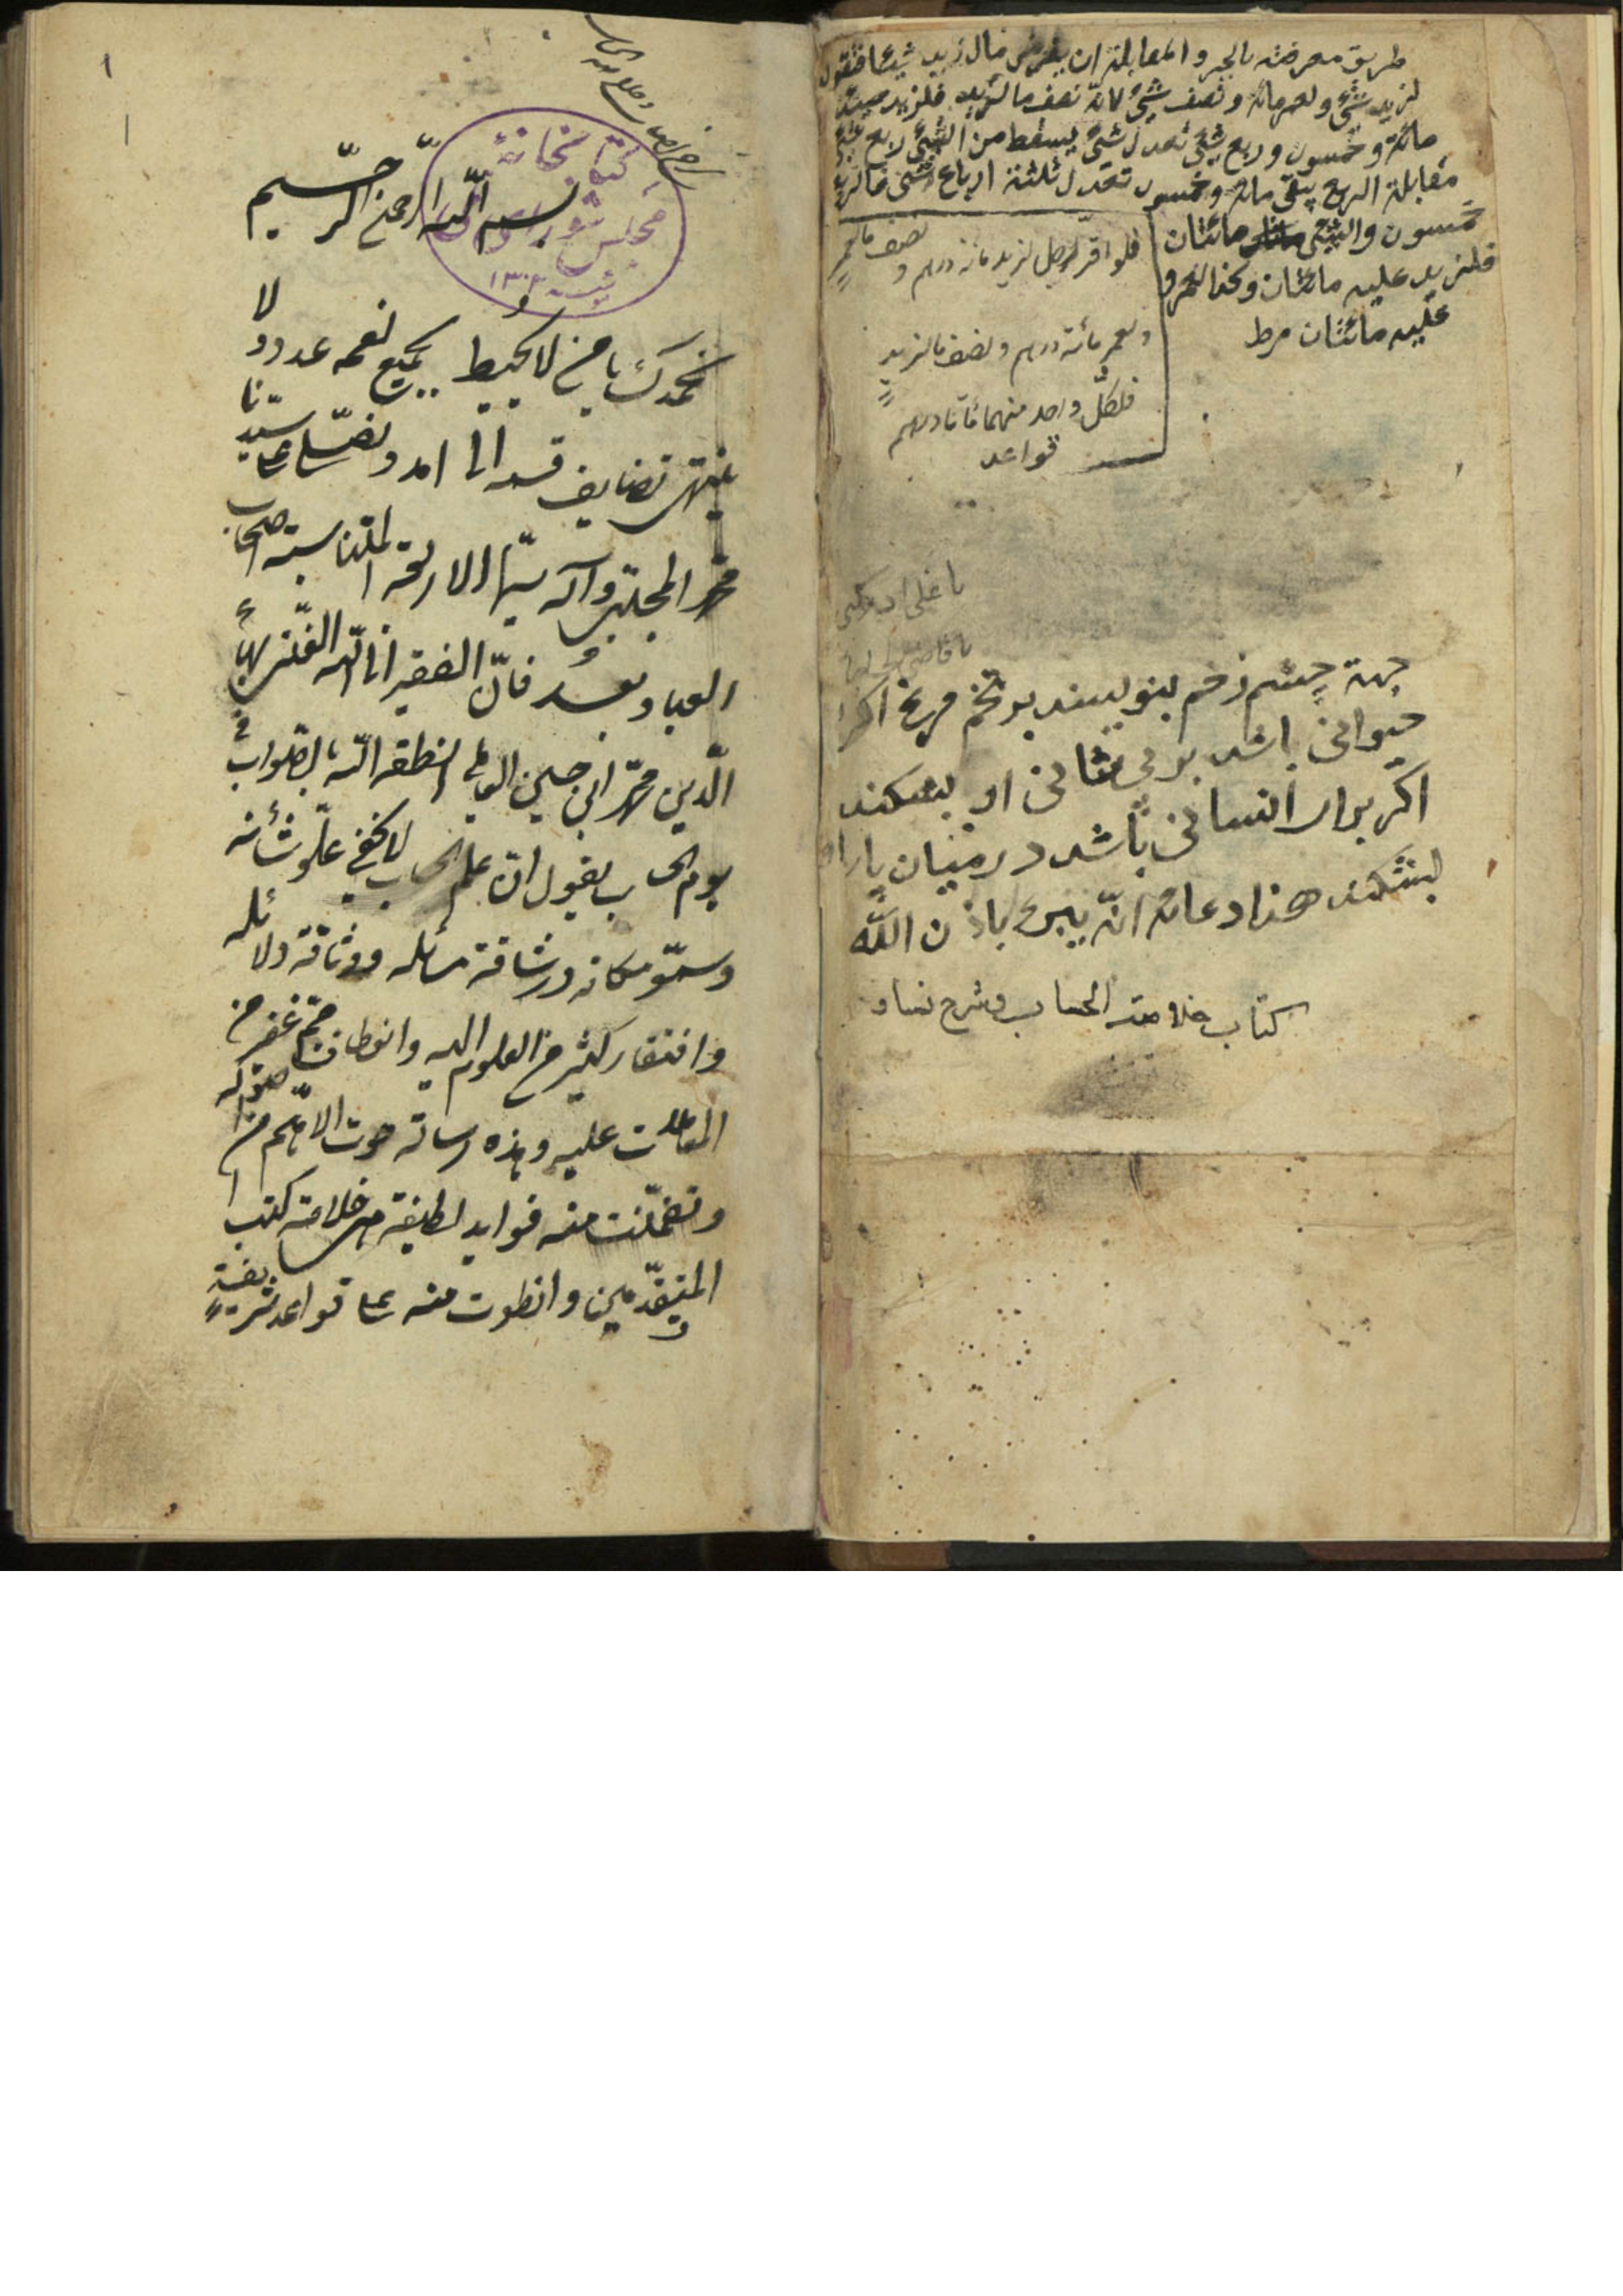 طريق معرفته بالجبر والمقابلة ان يفرض مال زيد شيئا فنقول
لزيد شئ ولعمر مائة ونصف شئ لانه نصف مالزيد فلزيد حينئذ
مائة وخمسون وربع شئ تعدل شئ يسقط من الشئ ربع شئ
مقابلة الربع يبقى مائة وخمسون تعدل ثلثة ارباع شئ فالربع
خمسون والشئ مائتان
فلزيد عليه مائتان وكذا لعمرو
عليه مائتان مرط
فلو اقر لرجل لزيد مائة درهم و
نصف مالعمر
ولعمر مائة درهم ونصف مالزيد
فلكل واحد منهما مائتا درهم
قواعد
جهة چشم زخم بنويسند بر تخم مرغ اكر
حيوانى باشد بر پيشانى او بشكند
اكر براى انسانى باشد در ميان پا
بشكند هذا دعائه انه يبرء باذن الله
كتاب خلاصة الحساب وشرح
۱
كتابخانهٔ
مجلس شوراى
۱۳۰۲
بسم الله الرحمن الرحيم
نحمدك يا من لا يحيط بجميع نعمه عدد ولا
ينتهى تضاعيف قسمه الى امد ونصلى على سيدنا
محمد المجتبى وآله سيما الاربعة المتناسبة اصحاب
العباء وبعد فان الفقير الى الله الغنى بهاء
الدين محمد ابن حسين العاملى انطقه الله بالصواب فى
يوم الحساب يقول ان علم الحساب لا يخفى علو شأنه
وسمو مكانه ورشاقة مسائله ووثاقة دلائله
وافتقار كثير من العلوم اليه وانعطاف جم غفير من
المعاملات عليه وهذه رسالة حوت الاهم من اصوله
وتضمنت منه فوايد لطيفة هى خلاصة كتب
المتقدمين وانطوت منه على قواعد شريفة